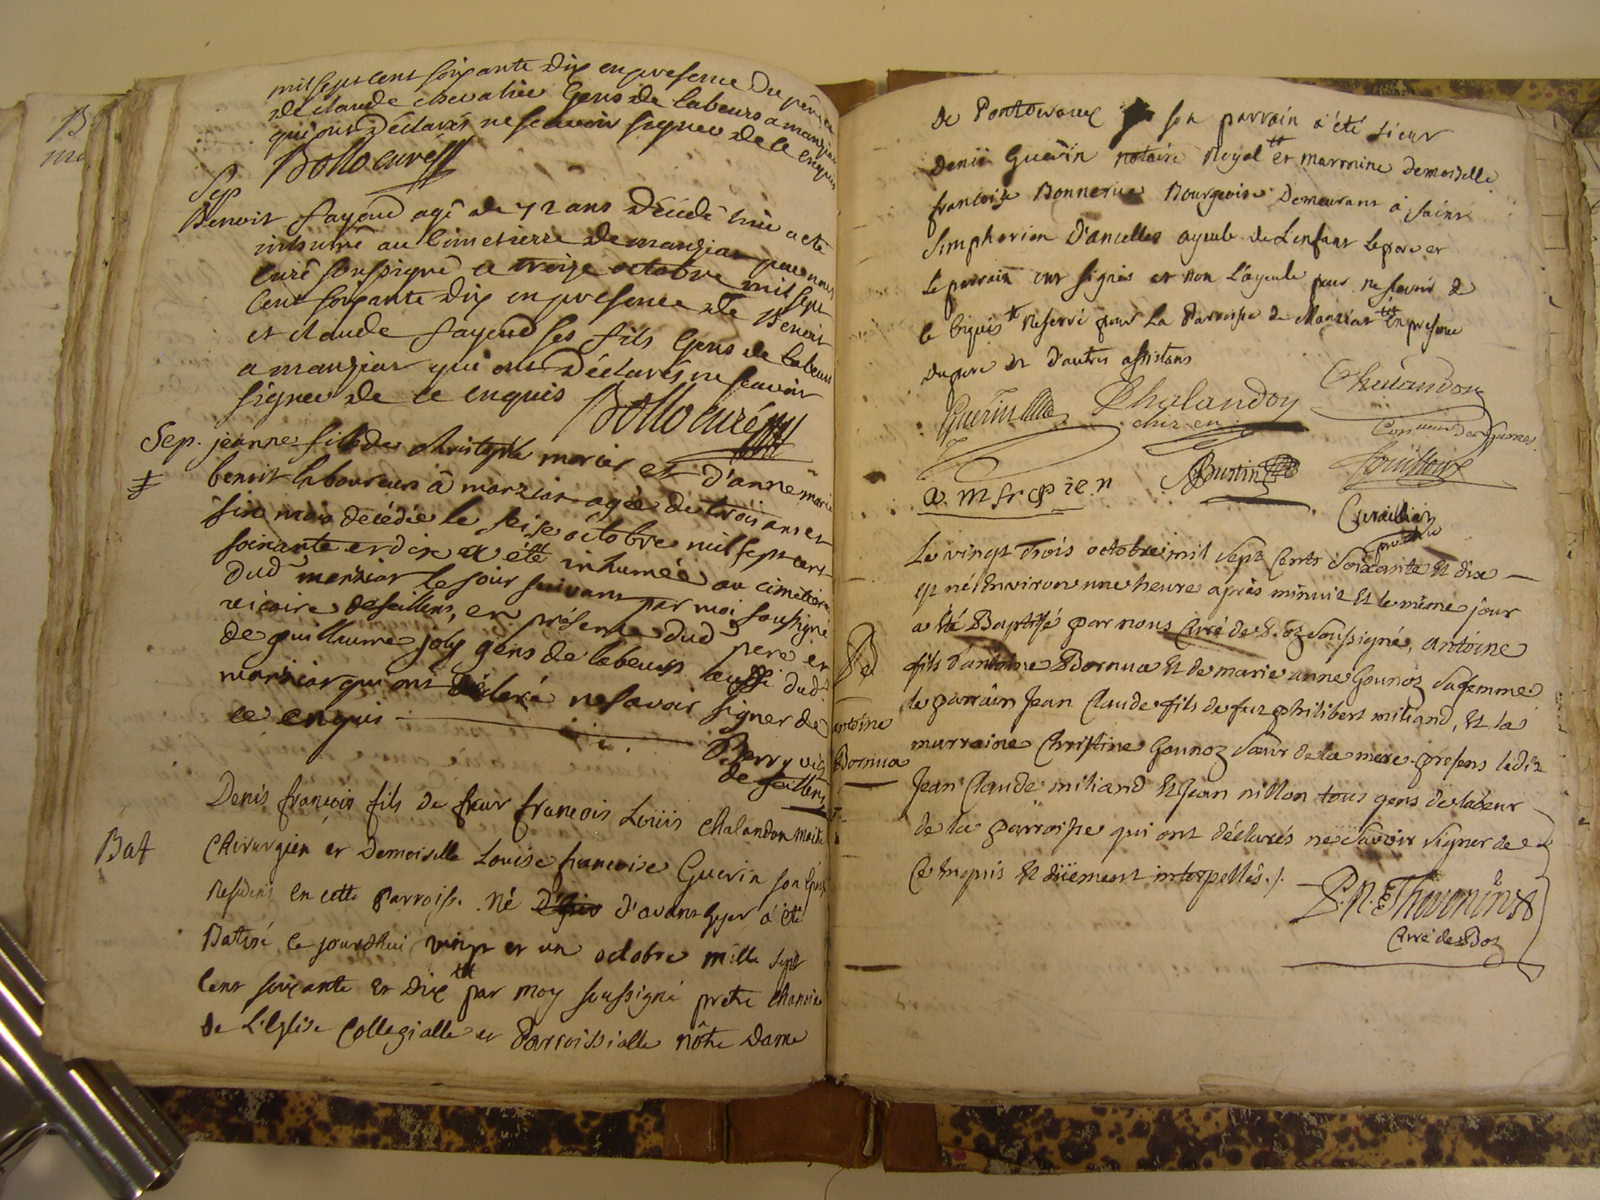 B
mil sept cent soixante dix en presence du père
de claude chevalier gens de labeurs a manziat
qui ont déclarés ne scavoir signer de ce enquis
Bollo curé
Sep
Benoit fayoud agé de 72 ans décédé hier a eté
inhumé au cimetierre de manziat par nous
curé soussigné ce treize octobre mil sept
cent soixante dix en presence de Benoit
et claude fayoud ses fils gens de labeurs
a manziat qui ont déclarés ne scavoir
signer de ce enquis Bollo curé
Sep. jeanne fille de christophe mercier et d'anne marie
benoit laboureurs à manziat agée de trois ans et
six mois décédée le seise octobre mil sept cent
soixante et dix a été inhumée au cimetiere
dud manziat le jour suivant par moi soussigné
vicaire de feillens, en présence dud pere et
de guillaume joly gens de labeurs aussi dud
manziat qui ont déclaré ne savoir signer de
ce enquis
Perry vic
de feillens
Bat
Denis françois fils de sieur françois Loüis chalandon maitre
Chirurgien et Demoiselle Louise françoise Guerin son épouse
residens en cette parroisse. Né d'avant hyer a été
Batisé ce jourdhui vingt et un octobre mille sept
Cent soixante et dix par moy soussigné pretre chanoine
de L'eglise Collegialle et Parroissialle nôtre Dame
de Pontdevaux son parrain a été sieur
Denis Guerin notaire Royal et marraine demoiselle
françoise Bonnerue Bourgeoise Demeurant à saint
Simphorien D'ancelles ayeule de L'enfant le pere et
le parrain ont signés et non L'ayeule pour ne scavoir de
ce Enquis Reservé pour La Parroisse de Manziat En presence
du pere et d'autres assistans
Guerin Chalandon
chir en
Chalandon
Bat
Antoine
Bornua
Le vingt trois octobre mil Sept Cents Soixante Et dix
est né Environ une heure après minuit Et le même jour
a été Baptisé par nous Curé de Boz soussigné, antoine
fils d'antoine Bornua Et de marie anne Gounoz sa femme
le parrain Jean Claude fils de fut philibert miliand, Et la
marraine Christine Gounoz Sœur de la mere. presens ledit
Jean Claude miliand Et Jean nillon tous gens de labeur
de la parroisse qui ont déclarés ne savoir signer de
Ce Enquis Et düement interpellés ./.
Thevenin
Curé de Boz